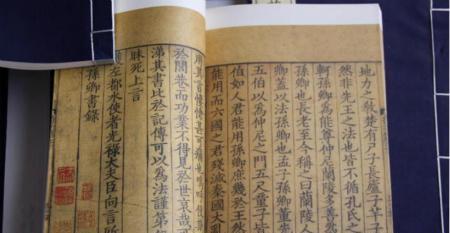 地力之敎楚有尸子長廬子芋子
然非先王之法也皆不循孔氏之
軻孫卿爲能尊仲尼蘭陵多善爲
卿也長老至今稱之曰蘭陵人
卿蓋以法孫卿也孟子孫卿董
五伯以爲仲尼之門五尺童子皆
伯如人君能用孫卿庶幾於王
能用而六國之君殘滅秦國大亂
用其言悽愴甚可痛也嗚呼使
於閭巷而功業不得見於世哀哉
涕其書比於記傳可以爲法謹第
昧死上言
左都水使者光祿大夫臣向言
孫卿書錄